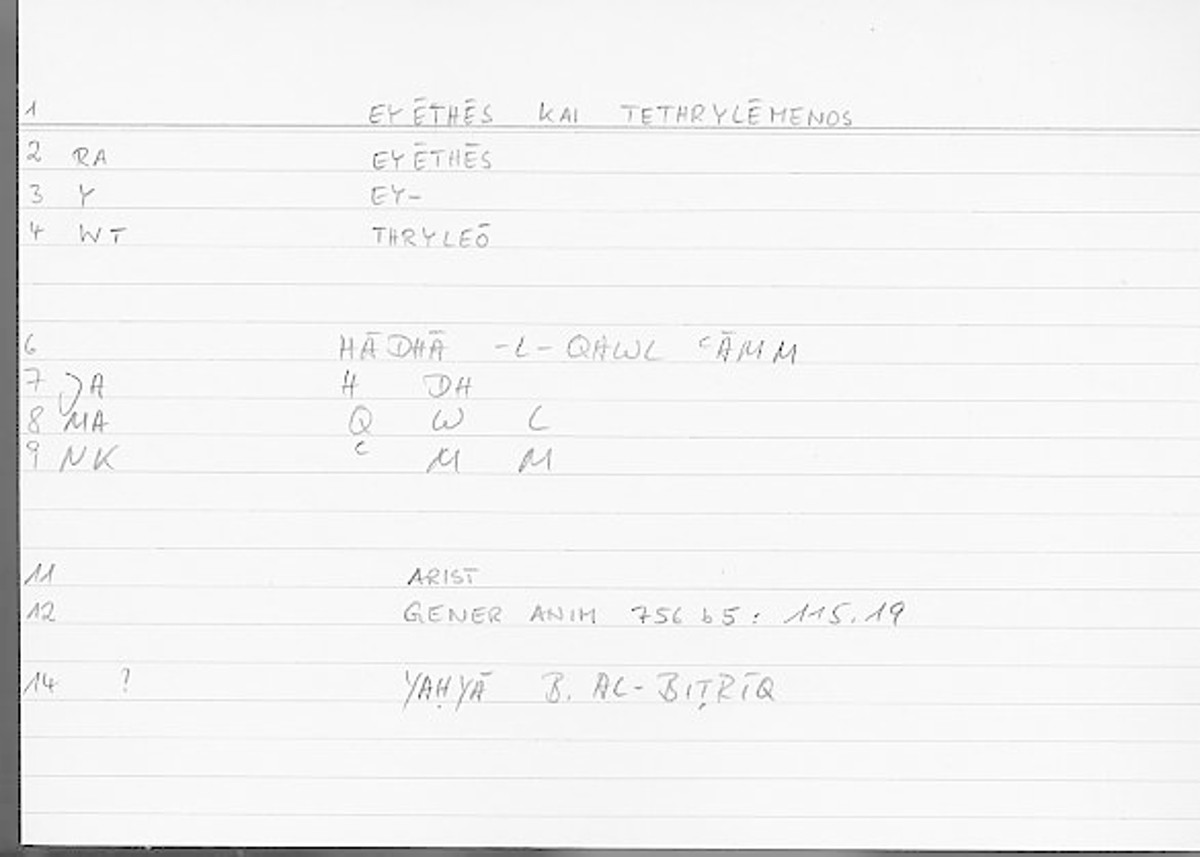 1 EYĒTHĒS KAI TETHRYLĒMENOS
2 RA EYĒTHĒS
3 Y EY-
4 WT THRYLEŌ
6 HĀDHĀ -L- QAWL ʿĀMM
7 JA H DH
8 MA Q W L
9 NK ʿ M M
11 ARIST
12 GENER ANIM 756 b5 : 115.19
14 ? YAḤYĀ B. AL-BIṬRĪQ